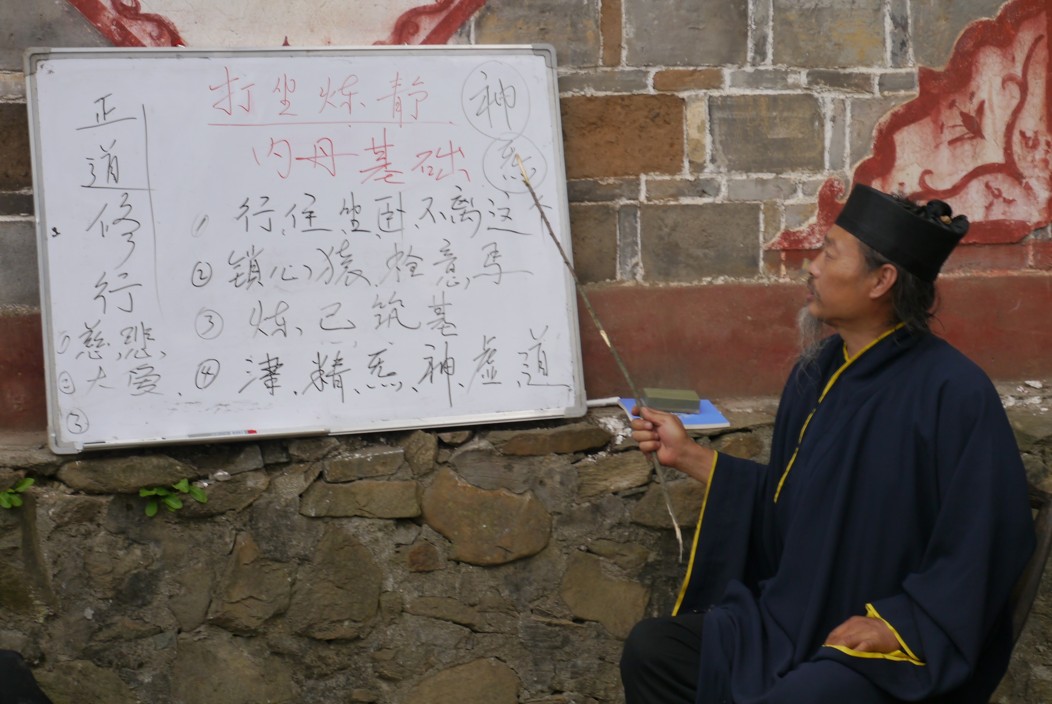 正道修行
①慈悲
②大爱
③
打坐炼静
内丹基础
神
炁
1 行住坐卧不离这个
② 锁心猿拴意马
③ 炼己筑基
④ 津、精、炁、神、虚、道